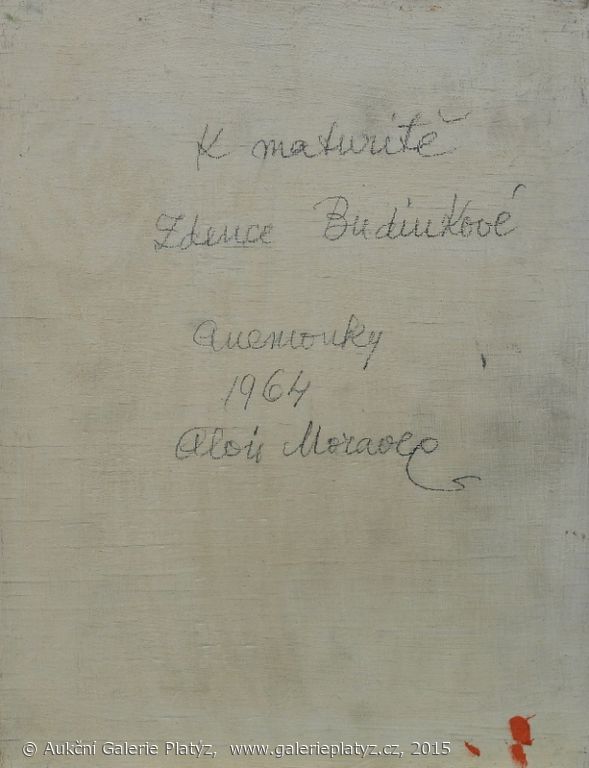 K maturitě
Zdence Budinkové
Anemonky
1964
Alois Moravec
© Aukční Galerie Platýz, www.galerieplatyz.cz, 2015